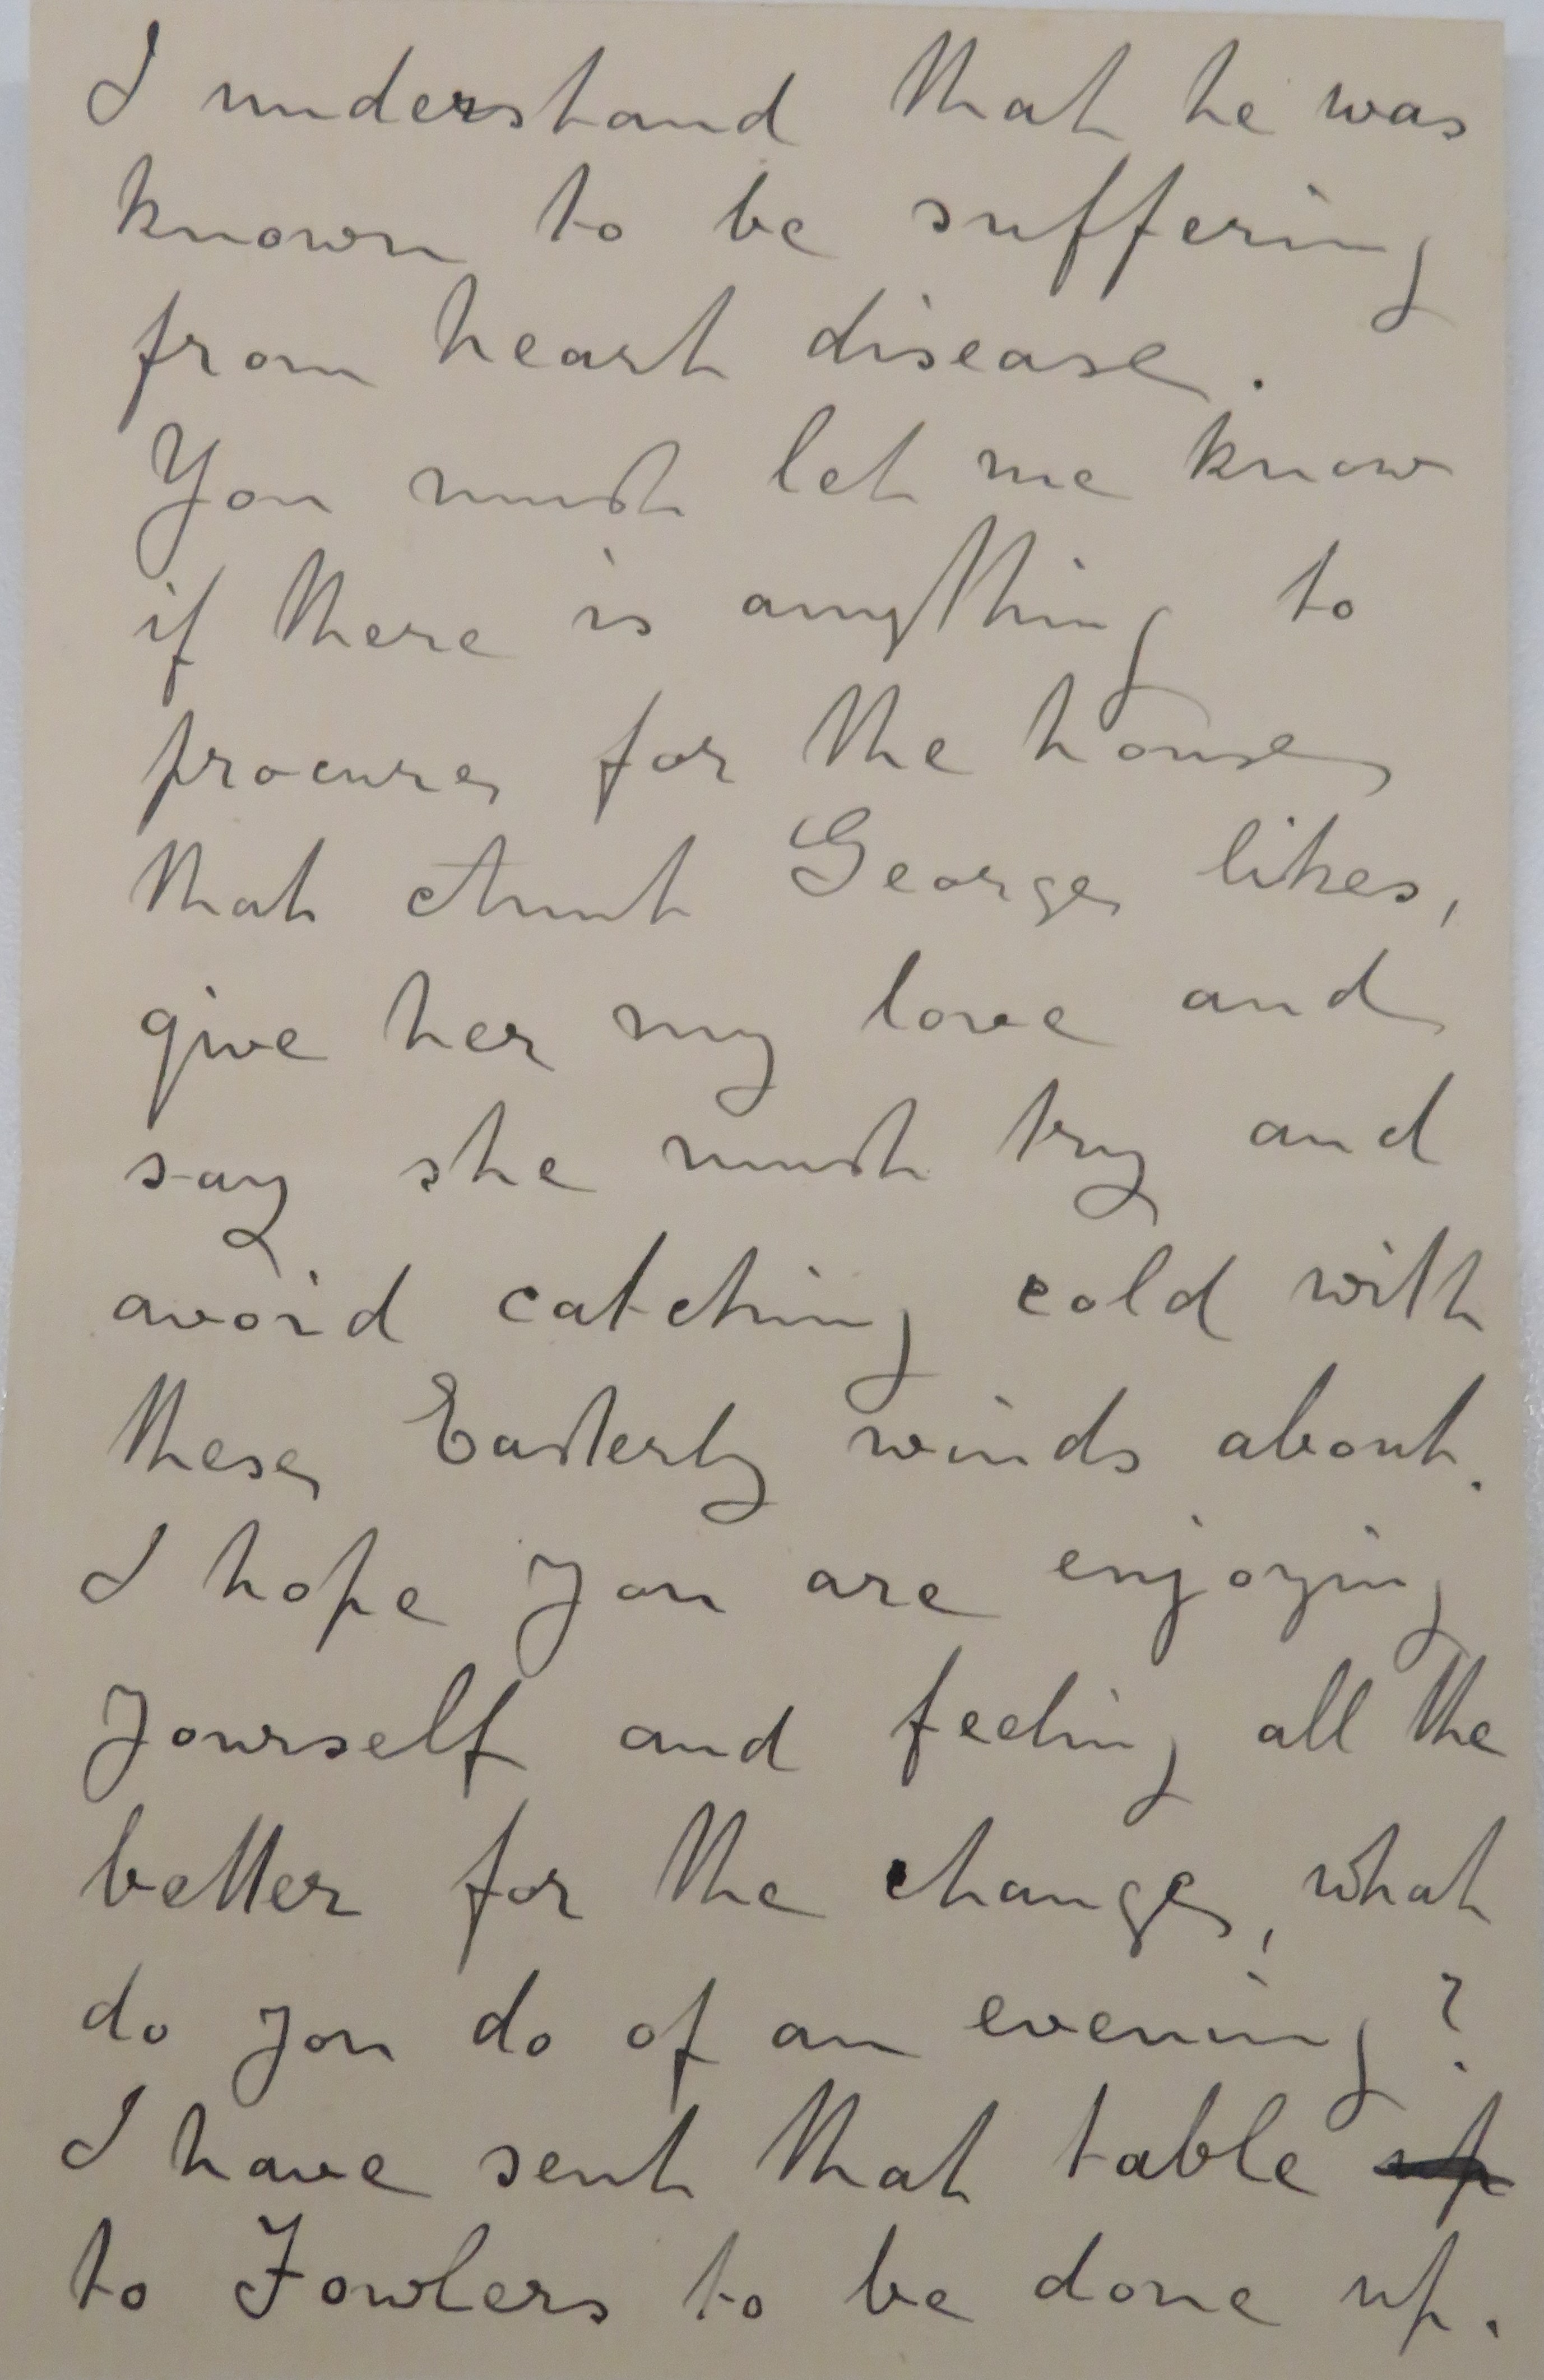 I understand that he was
known to be suffering
from heart disease.
You must let me know
if there is anything to
procure for the house
that Aunt George likes,
give her my love and
say she must try and
avoid catching cold with
these Easterly winds about.
I hope you are enjoying
yourself and feeling all the
better for the change, what
do you do of an evening?
I have sent that table up
to Fowlers to be done up.